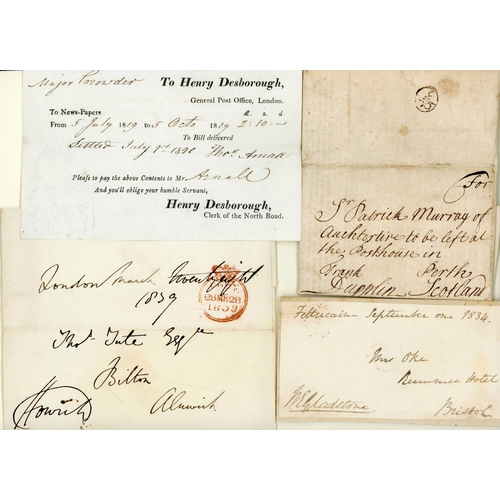 Major Crowder To Henry Desborough,
General Post Office, London.
£. s. d.
To News-Papers
From 5 July 1819 to 5 Octo 1819 2: 10: -
To Bill delivered
Settled July 1st 1820 Thos. Arnall
Please to pay the above Contents to Mr. Arnall
And you'll oblige your humble Servant,
Henry Desborough,
Clerk of the North Road.
For
Sr. Patrick Murray of
Auchtertire to be left at
the Posthouse in
Frank Perth
Dupplin Scotland
London March Twentyeight
1839
28MR28
1839
Thos. Tate Esqre
Bilton
Alnwick
Howick
Fettercairn September one 1834.
Mrs Oke
Hotel
WEGladstone. Bristol